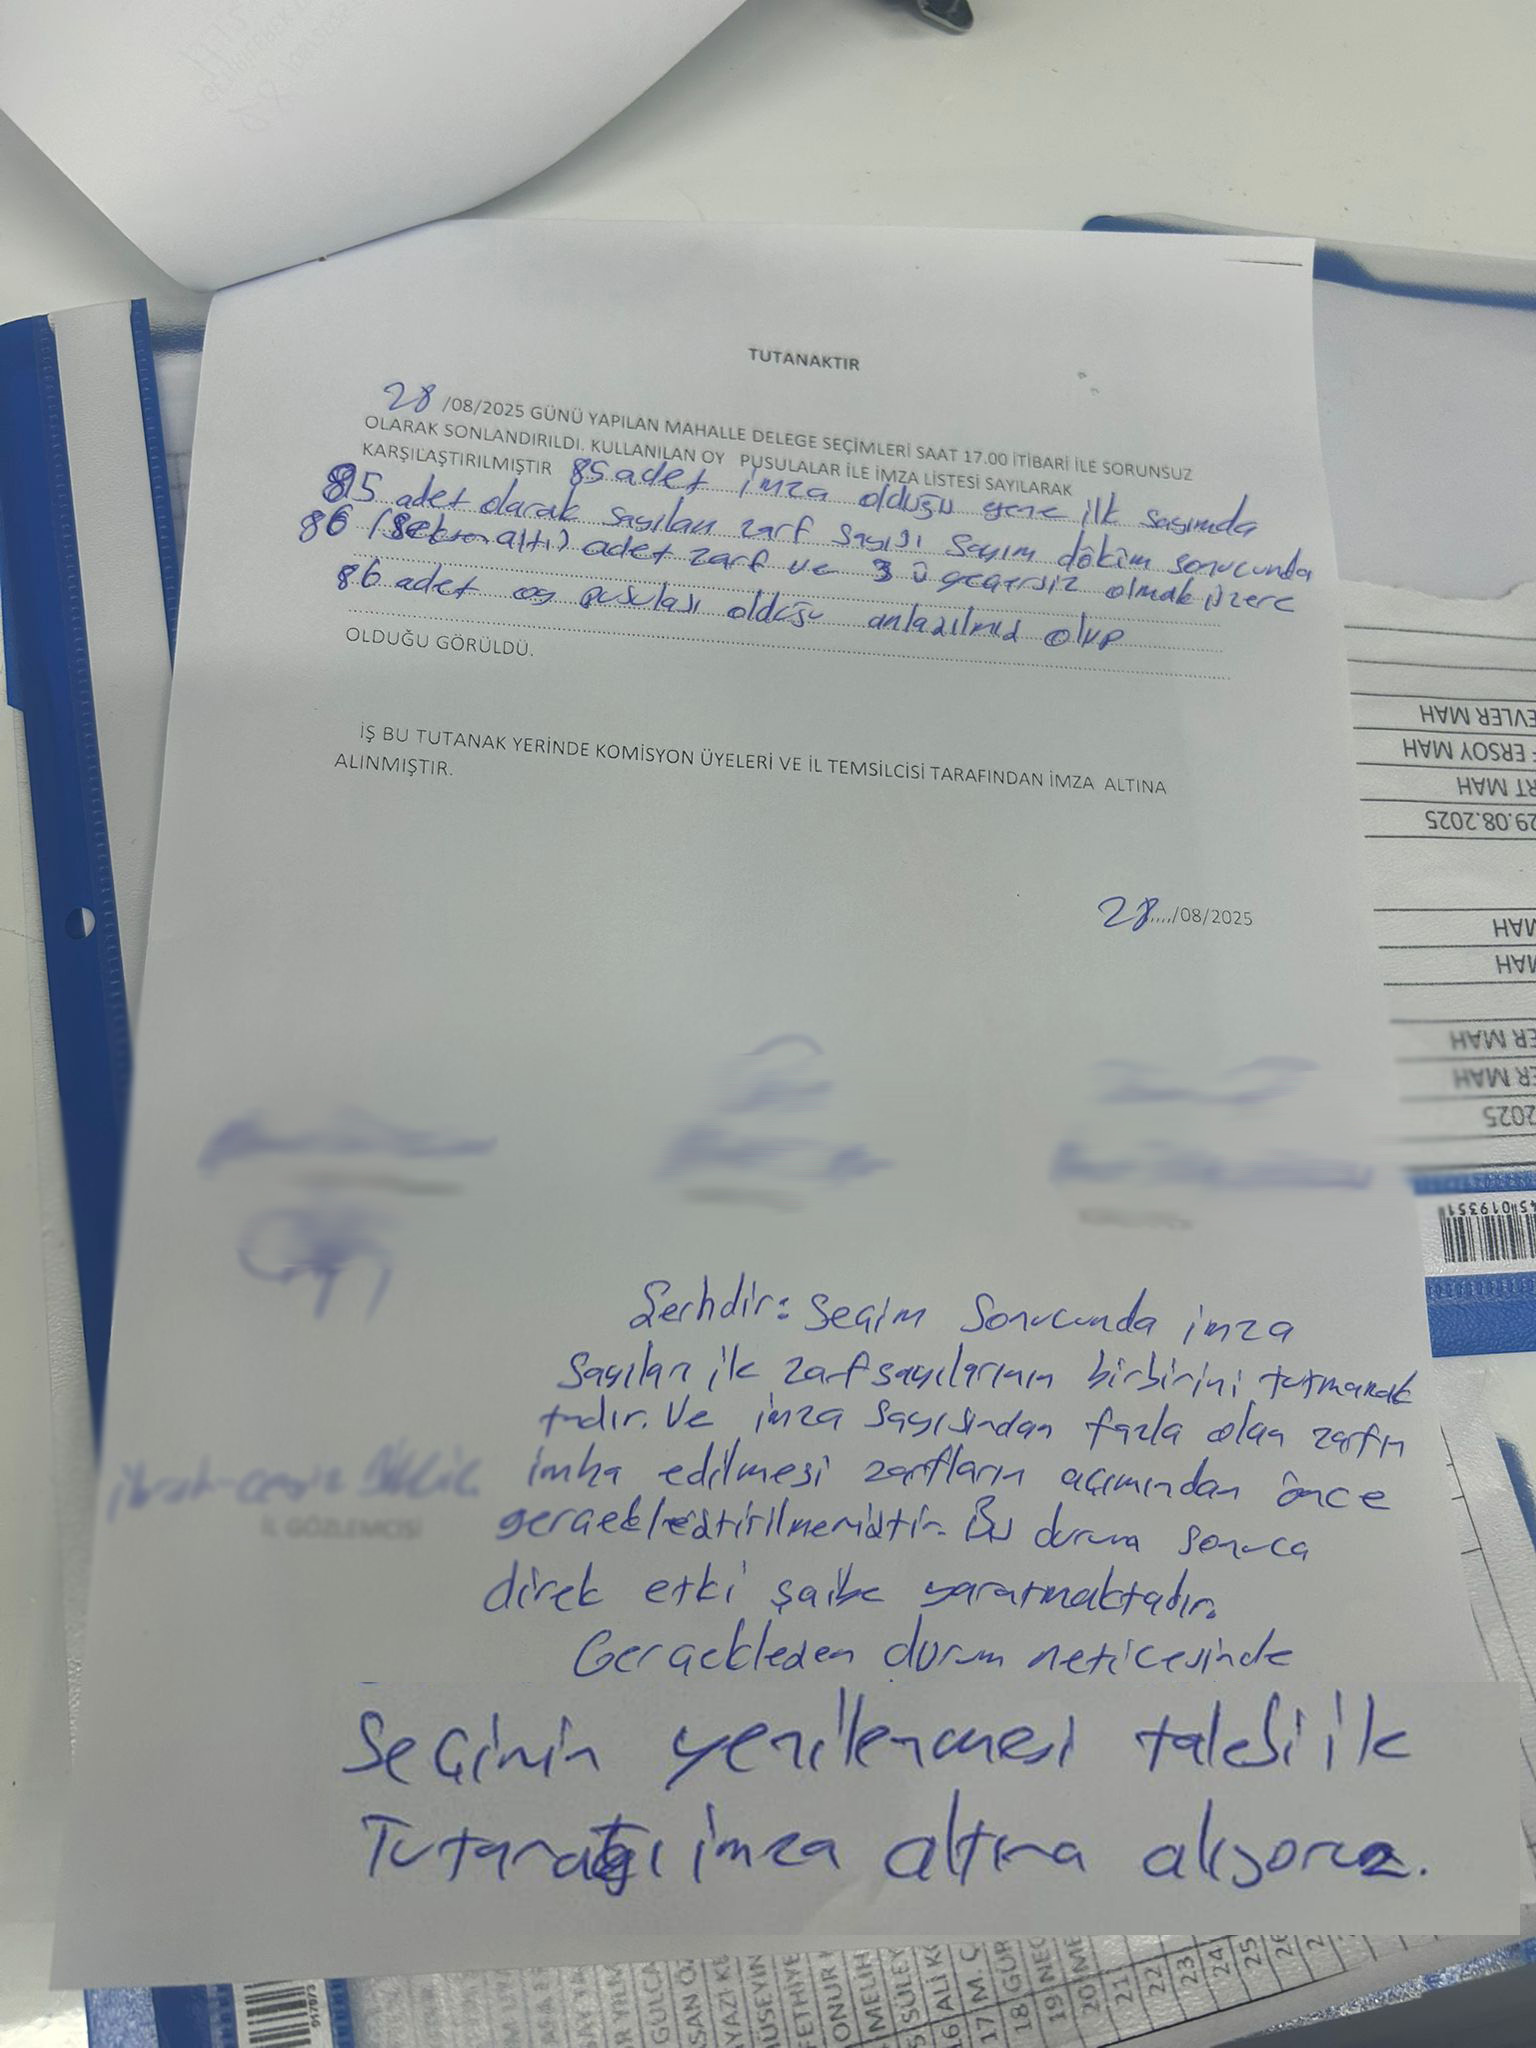 TUTANAKTIR
28 /08/2025 GÜNÜ YAPILAN MAHALLE DELEGE SEÇİMLERİ SAAT 17.00 İTİBARİ İLE SORUNSUZ
OLARAK SONLANDIRILDI. KULLANILAN OY PUSULALAR İLE İMZA LİSTESİ SAYILARAK
KARŞILAŞTIRILMIŞTIR 85 adet imza olduğu yene ilk sayımda
85 adet olarak sayılan zarf sayısı sayım döküm sonucunda
86 (seksen altı) adet zarf ve 3 ü geçersiz olmak üzere
86 adet oy pusulası olduğu anlaşılmış olup
OLDUĞU GÖRÜLDÜ.
İŞ BU TUTANAK YERİNDE KOMİSYON ÜYELERİ VE İL TEMSİLCİSİ TARAFINDAN İMZA ALTINA
ALINMIŞTIR.
28..../08/2025
Şerhdir: Seçim Sonucunda imza
Sayıları ile zarf sayılarının birbirini tutmamak
tadır. Ve imza sayısından fazla olan zarfın
imha edilmesi zarfların açımından önce
gerçekleştirilmemiştir. Bu durum sonuca
direk etki şaibe yaratmaktadır.
Gerçekleşen durum neticesinde
Seçimin yenilenmesi talebi ile
Tutanağı imza altına alıyoruz.
İL GÖZLEMCİSİ
EVLER MAH
ERSOY MAH
RT MAH
29.08.2025
MAH
MAH
ER MAH
ER MAH
2025
45 019351
917873
GULCA
SAN Ö
YAZ K
HÜSEYİN
FETHİYE
ONUR
MELİH
SÜLEY
16 ALİ K
17 M. Ç
18 GÜR
19 NEC
20 ME
21
22
23
24
25
26